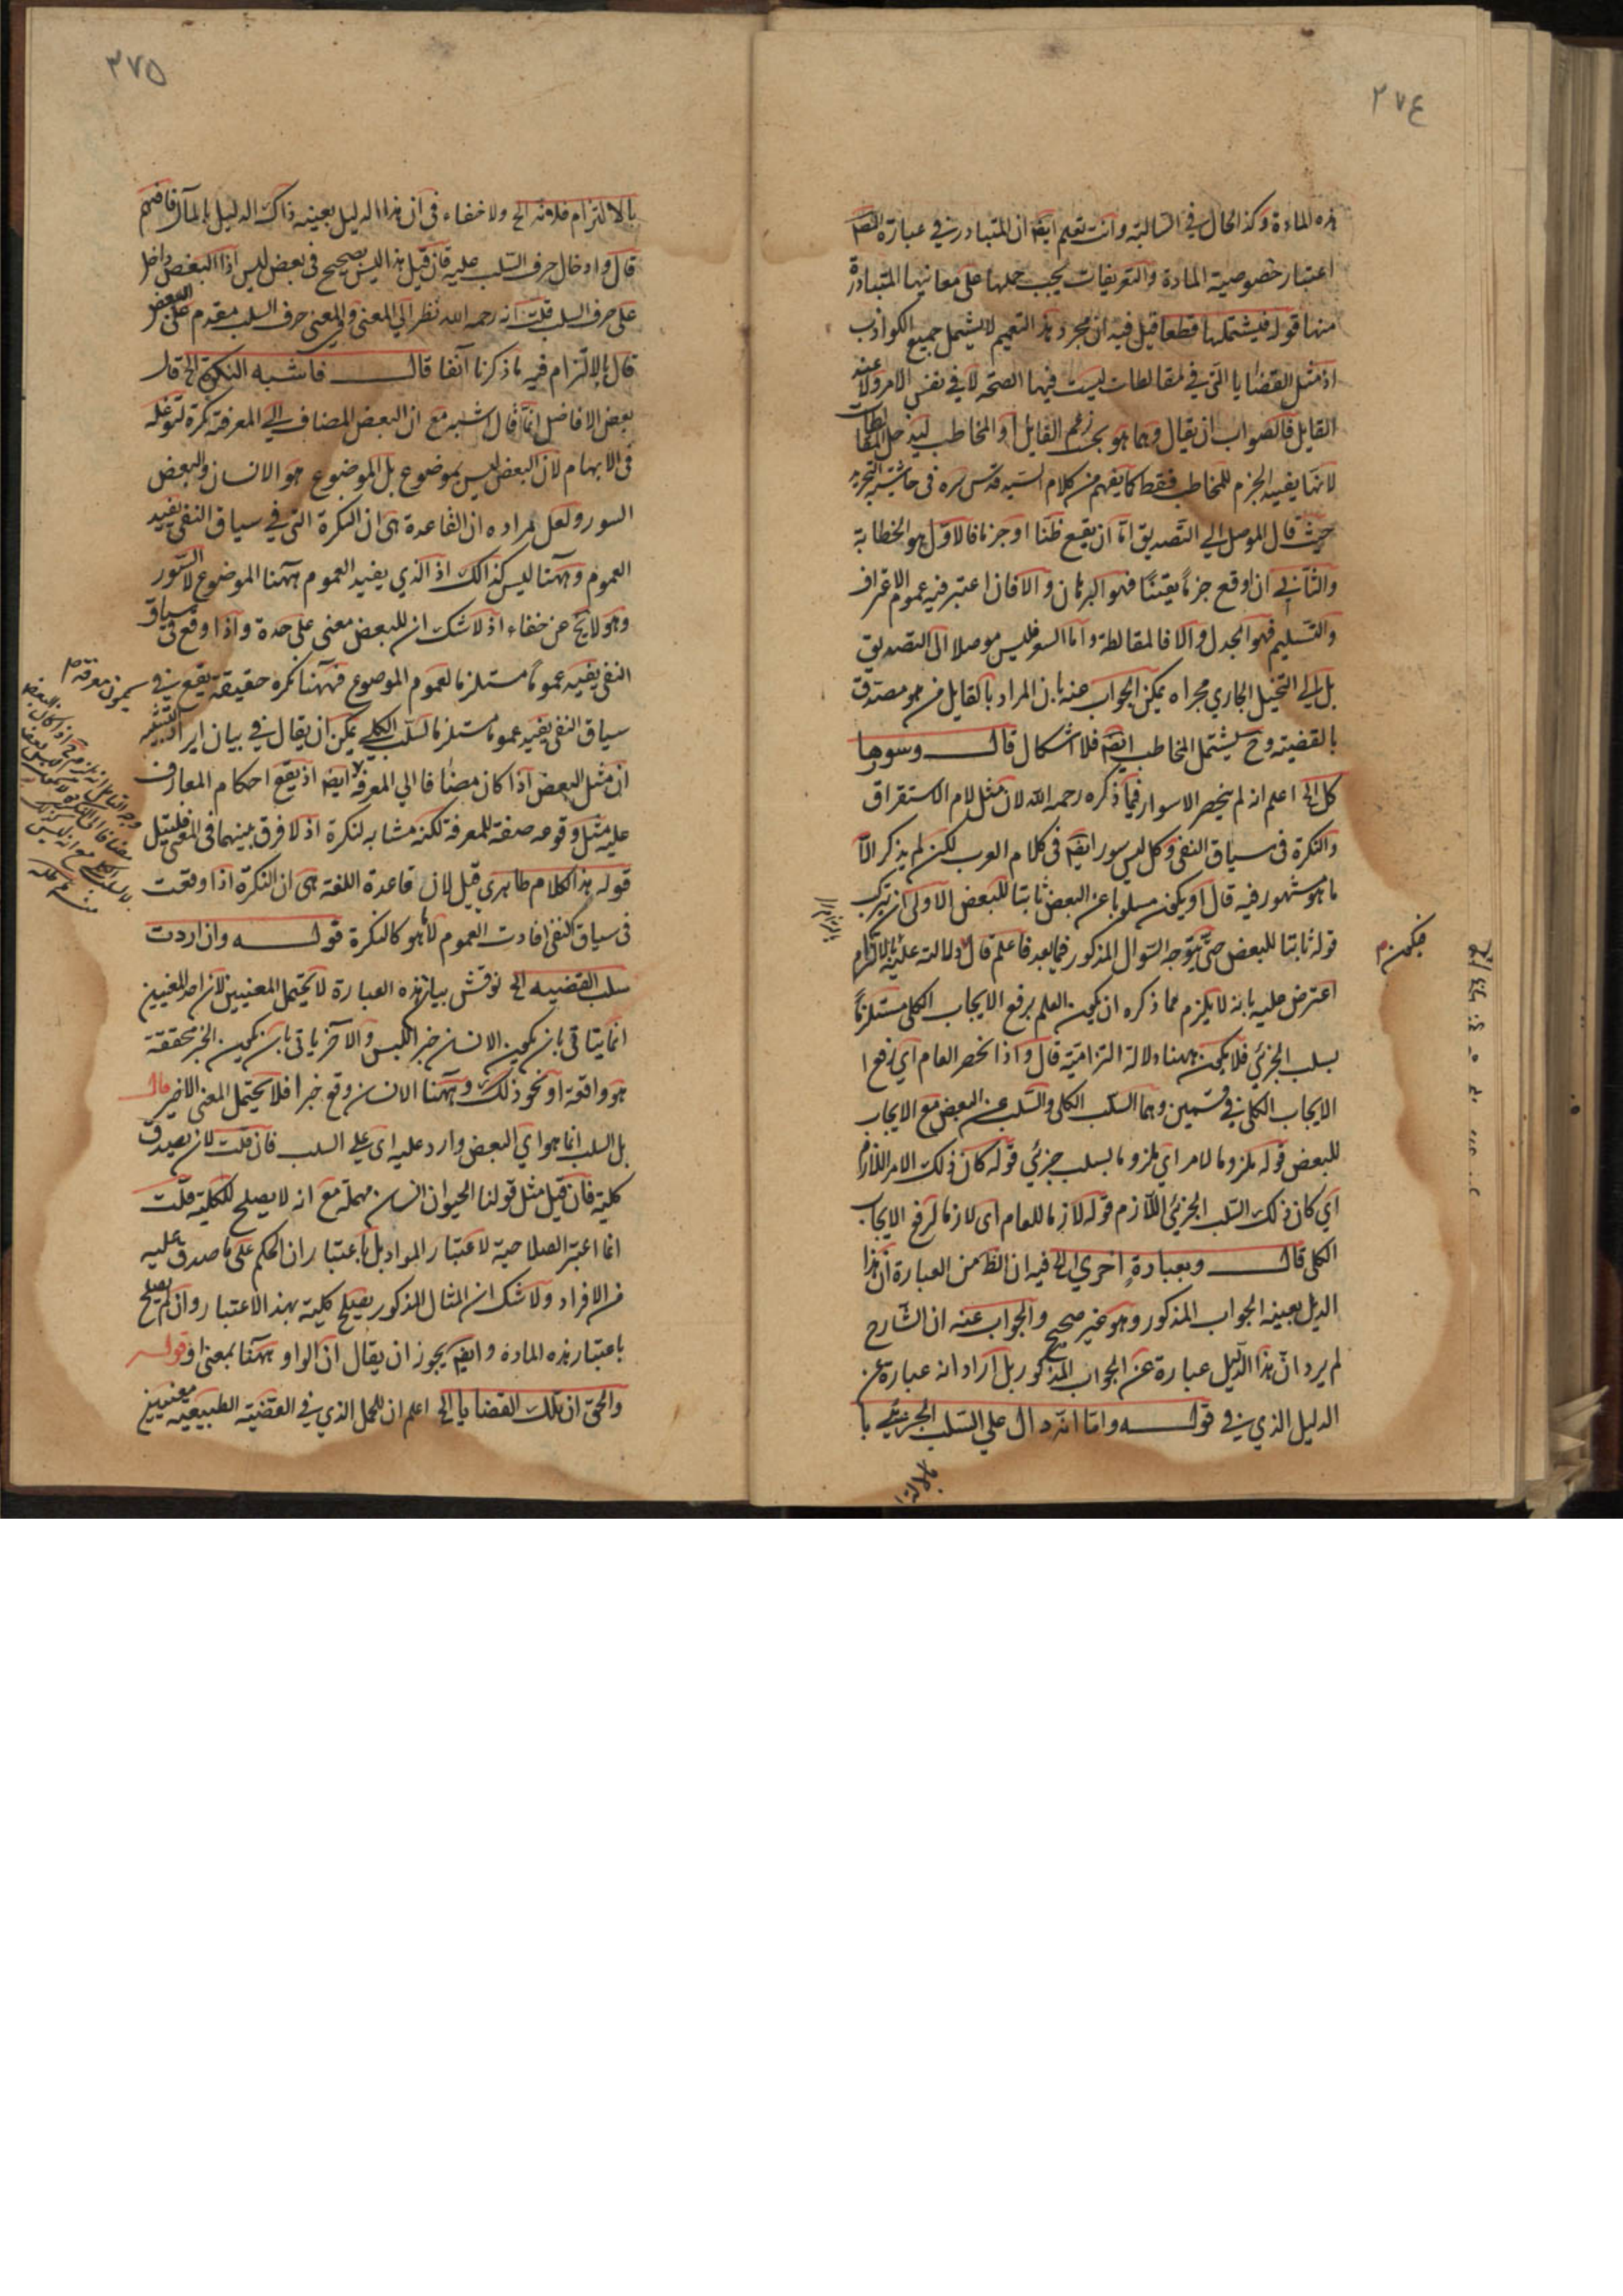 ٢٧٤
هذه المادة وكذا الحال في السالبة وانت تعلم ايضا ان المتبادر في عبارة المص
اعتبار خصوصية المادة والتعريفات يجب حملها على معانيها المتبادرة
منها قوله فيشتملها قطعا قيل فيه ان مجرد هذا التعميم لا يشمل جميع الكواذب
اذ مثل القضايا التي في المغالطات ليست فيها الصحة لا في نفس الامر ولا عند
القايل فالصواب ان يقال وهما هو بحسب زعم القايل او المخاطب ليدخل المغالطات
لانها يفيد الجزم للمخاطب فقط كما يفهم من كلام السيد قدس سره في حاشية التجريد
حيث قال الموصل الي التصديق اما ان يقع ظنا او جزما فالاول هو الخطابة
والثاني ان اوقع جزماً يقينيًا فهو البرهان والا فان اعتبر فيه عموم الاعتراف
والتسليم فهو الجدل والا فالمغالطة واما الشعر فليس موصلا الى التصديق
بل الي التخييل الجاري مجراه يمكن الجواب عنه بان المراد بالقايل من هو مصدق
بالقضية وح يشتمل المخاطب ايضا فلا اشكال قال وسورها
كل الخ اعلم انه لم ينحصر الاسوار فيما ذكره رحمه الله لان مثل لام الاستغراق
والنكرة في سياق النفي وكل ليس سور ايضا في كلام العرب لكن لم يذكر الا
ما هو مشهور فيه قال او يكون مسلوبا عن البعض ثابتا للبعض الاولى ان يترك
قوله ثابتا للبعض حتى يتوجه السوال المذكور فيما بعد فاعلم قال ودلالته عليه بالالتزام
اعترض عليه بانه لا يلزم مما ذكره ان يكون العلم برفع الايجاب الكلى مستلزماً
بسلب الجزئي فلا يكون ههنا دلالة التزامية قال واذا انحصر العام اي رفع ا
الايجاب الكلي في قسمين وهما السلب الكلى والسلب عن البعض مع الايجاب
للبعض قوله ملزوما لامر اي ملزوما لسلب جزئي قوله كان ذلك الامر اللازم
اي كان ذلك السلب الجزئي اللازم قوله لازما للعام اى لازما لرفع الايجاب
الكلى قال وبعبارة اخري الخ فيه ان الظ من العبارة ان هذا
الدليل بعينه الجواب المذكور وهو غير صحيح والجواب عنه ان الشارح
لم يرد ان هذا الدليل عبارة عن الجواب المذكور بل اراد انه عبارة عن
الدليل الذي في قوله واما انه دال علي السلب الجزئي با
فيكون
٣٧٥
بالالتزام فلانه الخ ولا خفاء في ان هذا الدليل بعينه ذاك الدليل بالمآل فافهم
قال وادخال حرف السلب عليه فان قيل هذا ليس بصحيح في بعض ليس اذا البعض داخل
على حرف السلب قلت انه رحمه الله نظر الي المعنى وفي المعنى حرف السلب مقدم على البعض
قال بالالتزام فيه ما ذكرنا آنفا قال فاشبه النكرة الخ قال
بعض الافاضل انما قال اشبه مع ان البعض المضاف الي المعرفة نكرة لتوغله
في الابهام لان البعض ليس بموضوع بل الموضوع هو الانسان والبعض
السور ولعل مراده ان القاعدة هى ان النكرة التي في سياق النفي يفيد
العموم وههنا ليس كذالك اذ الذي يفيد العموم ههنا الموضوع لا السور
وهو لا يخ عن خفاء اذ لا شك ان للبعض معنى على حدة واذا وقع في سياق
النفي يفيد عموماً مستلزما لعموم الموضوع فههنا نكره حقيقة يقع في
سياق النفي يفيد عموما مستلزما لسلب الكلي يمكن ان يقال في بيان ايراد التشبيه
ان مثل البعض اذا كان مضافا الي المعرفة ايضا اذ يقع احكام المعارف
عليه مثل وقوعه صفة للمعرفة لكنه مشابه لنكرة اذ لا فرق بينهما في المعنى فليتامل
قوله هذا الكلام ظاهري قيل لان قاعدة اللغة هى ان النكرة اذا وقعت
في سياق النفي افادت العموم لا ما هو كالنكرة قوله وان اردت
سلب القضيه الخ نوقش بان هذه العبارة لا تحتمل المعنيين لان احد المعنيين
انما يتاتى بان يكون الانسان خبر ليس والآخر ياتى بان يكون الخبر محققة
هو واقعة او نحو ذلك وههنا الانسان وقع خبرا فلا يحتمل المعنى الاخير قال
بل السلب انما هو اي البعض وارد عليه اى على السلب فان قلت لان يصدق
كلية فان قيل مثل قولنا الحيوان انسان مهملة مع انه لا يصلح للكلية قلت
انما اعتبر الصلاحية لا عتبار المواد بل باعتبار ان الحكم على ما صدق عليه
من الافراد ولا شك ان المثال المذكور يصلح كلية بهذا الاعتبار وان لم يصلح
باعتبار هذه المادة وايضا يجوز ان يقال ان الواو ههنا بمعنى او قوله
والحق ان تلك القضايا الخ اعلم ان للحمل الذي في القضية الطبيعية معنيين